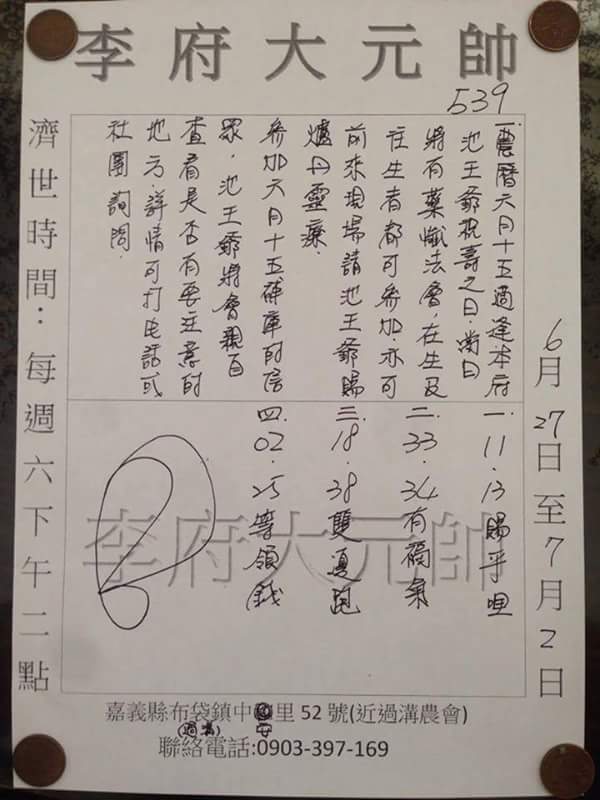 李府大元帥
539
6月27日至7月2日
一.農曆六月十五適逢本府
池王爺祝壽之日.當日
將有藥懺法會,在生及
往生者都可參加.亦可
前來現場請池王爺賜
爐丹靈藥.
參加六月十五補庫的信
眾,池王爺將會親自
查看是否有要注意的
地方.詳情可打电話或
社團詢問.
一.11.13賜乎咱
二.33.34有福氣
三.18.38雙邊跑
四.02.25等領錢
李府大元帥
濟世時間:每週六下午二點
嘉義縣布袋鎮中里 52 號(近過溝農會)
(過溝) 安
聯絡電話:0903-397-169